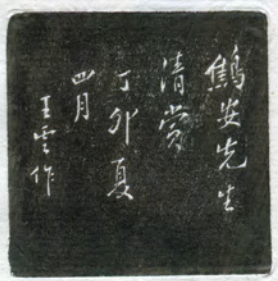 鶴安先生
清賞
丁卯夏
四月
王雲作